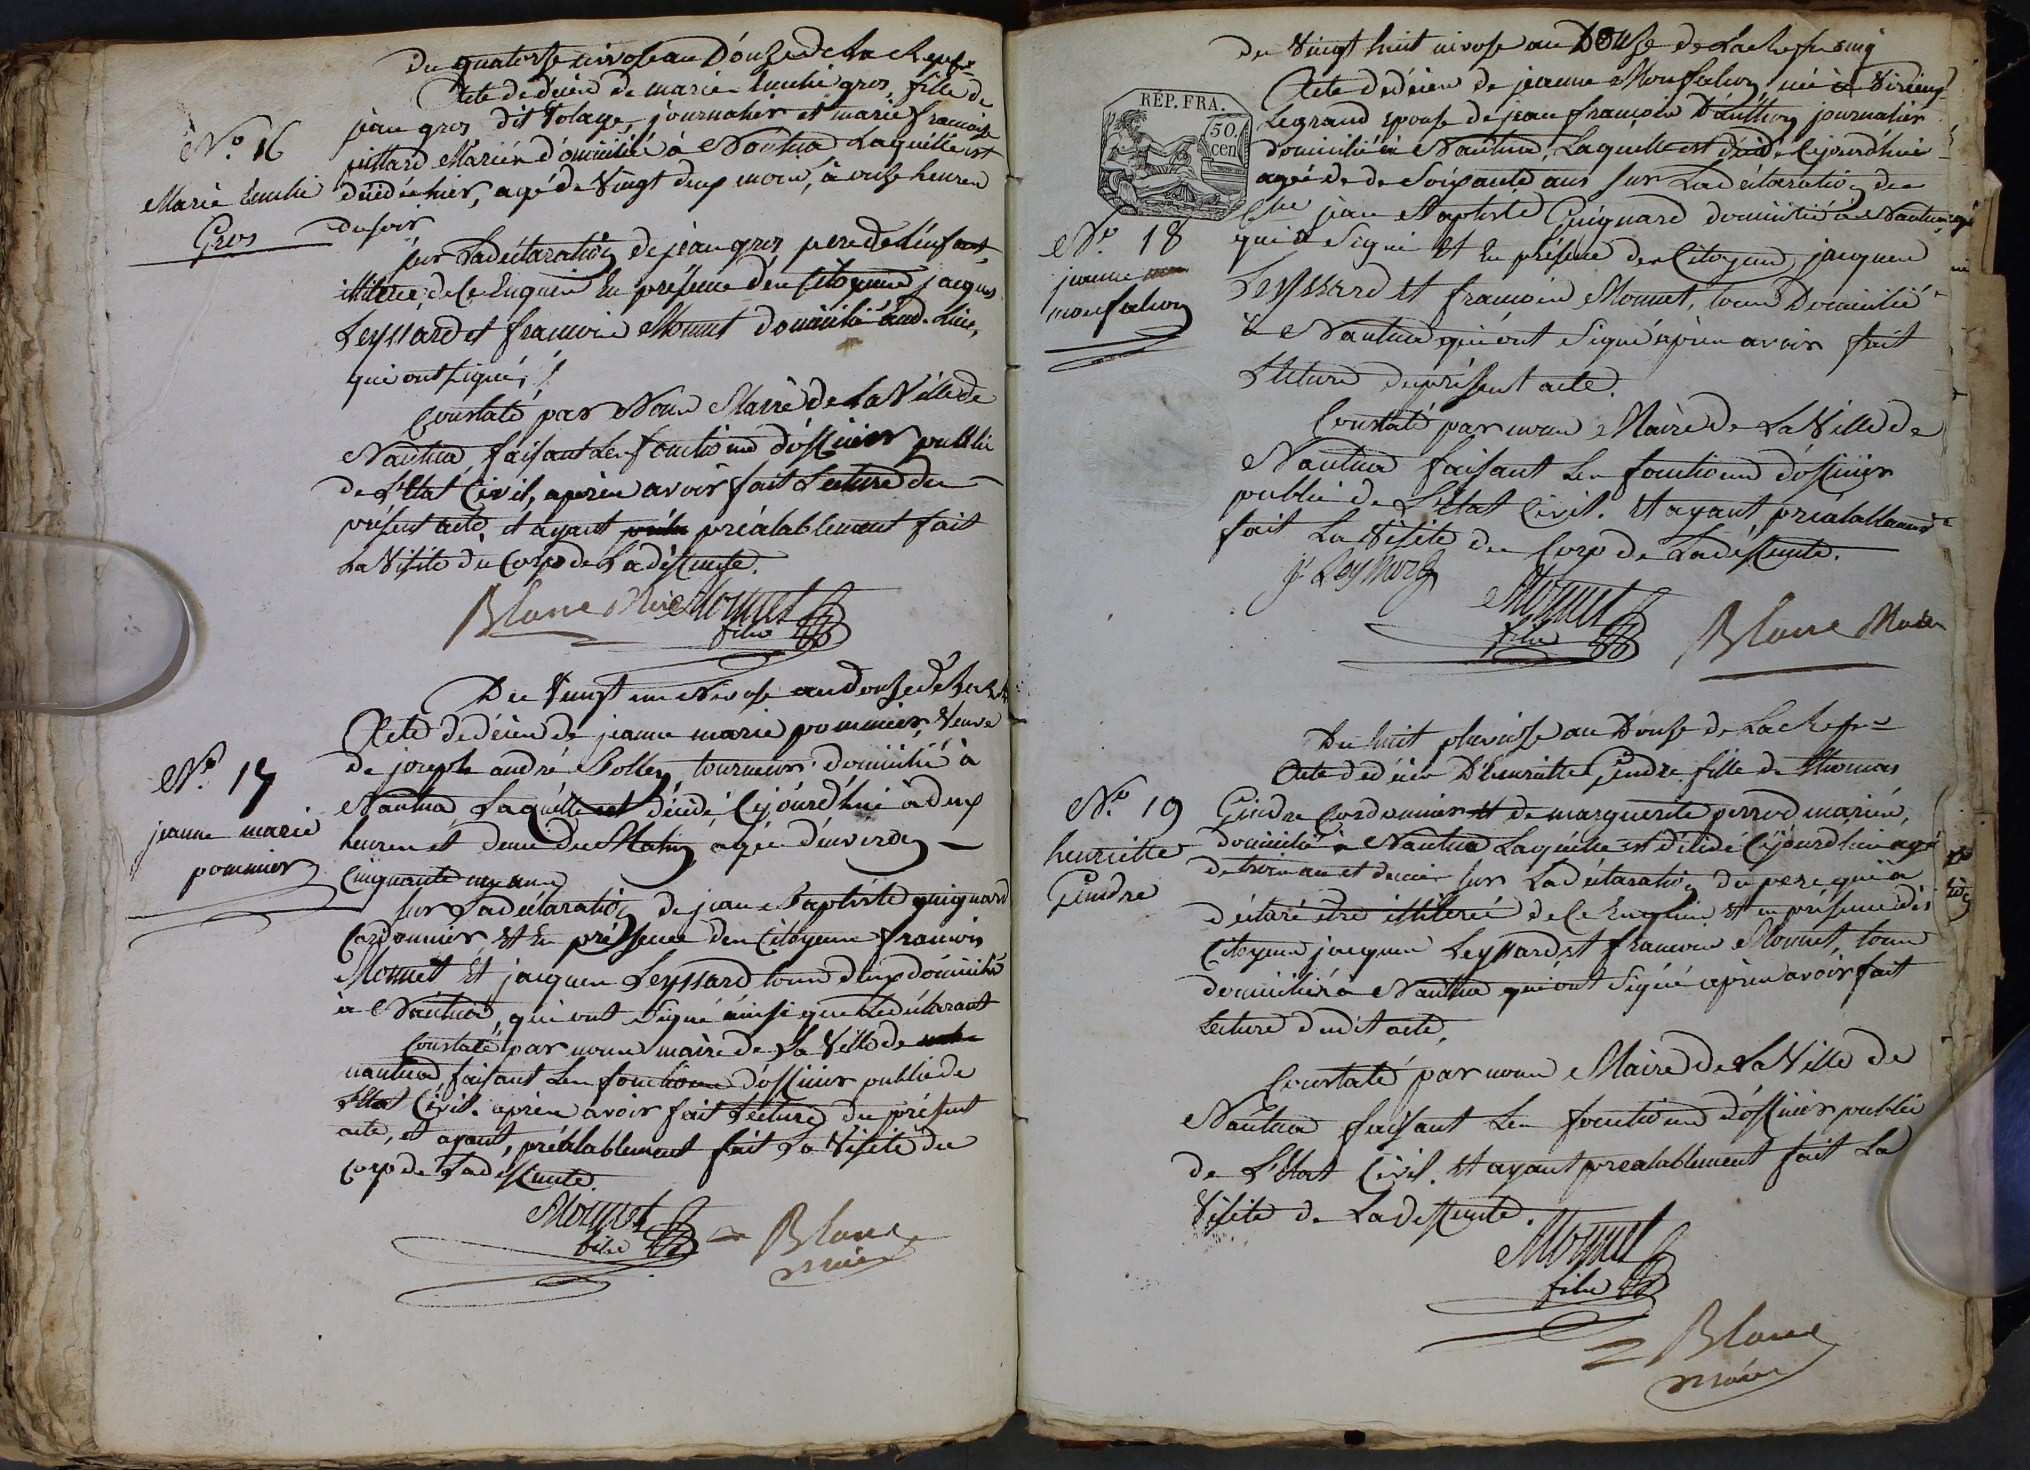 Du quatorse nivose an Douse de la Repq.e
Acte de décès de marie Emelie gros, fille de
jean gros dit Volage, journalier et marie francoise
juillard Mariés domicilié à Nantua Laquelle est
décédée hier, agé de Vingt deux mois, à onse heures
du soir
N.o 16
Marie Emelie
Gros
sur La déclaration de jean gros pere de L'enfant,
illiteré, de Ce Enquis En présence des Citoyens jacques
Leyssard et francois Monnet domicilié aud. Lieu,
qui ont signé,
Constaté par Nous Maire de La Ville de
Nantua faisant Les fonctions d'officier public
de L'Etat Civil, après avoir fait Lecture du
présent acte, et ayant préalablement fait
La Visite du Corps de La défeunte.
Blanc Maire Monnet
fils
Du Vingt un Nivose an douse de la Rep
Acte de décès de jeanne marie pommier, Veuve
de joseph andré Polley tourneur domicilié à
Nantua Laquelle est décédé Cejourd'hui à deux
heures et demi du Matin agée d'environ
Cinquante un ans
N.o 17
jeanne marie
pommier
sur La déclaration de jean Baptiste guignard
Cordonnier et En présence des Citoyens francois
Monnet Et jacques Leyssard tous deux domicilié
à Nantua, qui ont signé ainsi que Le déclarant
Constaté par nous maire de La Ville de
nantua, faisant Les fonctions d'officier public de
L'Etat Civil. après avoir fait Lecture du présent
acte, et ayant, préalablement fait La Visite du
Corp de La défeunte.
Monnet
fils
Blanc
maire
du Vingt huit nivose an Douse de La Rep
Acte de décès de jeanne Monfalcon, née à Virieux
Legrand epouse de jean francois Danthon journalier
domicilié à Nantua, Laquelle est décédé Cejourd'hui
agée de de Soixante ans sur La déclaration du
REP. FRA.
50.
cen
jean Baptiste Guignard domicilié à Nantua,
qui a Signé Et En présence des Citoyens jacques
Leyssard et francois Monnet, tous Domicilié
à Nantua qui ont Signé après avoir fait
Lecture du présent acte.
N.o 18
jeanne
monfalcon
Constaté par nous Maire de La Ville de
Nantua faisant Les fonctions d'officier
public de L'Etat Civil. Et ayant, préalablement
fait La Visite du Corp de La défeunte.
Monnet
fils
Blanc Maire
Du huit pluviose an Douse de La Rep.
Acte de décès D'henriette Gindre fille de Thomas
Gindre Cordonnier et de marguerite perrod mariés,
domicilié à Nantua Laquelle est décédé Cejourd'hui agé
de trois ans et demi sur La déclaration du pere qui a
déclaré être illiteré de Ce Enquis et en présence des
Citoyens jacques Leyssard et francois Monnet, tous
domiciliés à Nantua qui ont Signé après avoir fait
Lecture dudit acte.
N.o 19
henriette
Gindre
Constaté par nous Maire de La Ville de
Nantua faisant Les fonctions d'officier public
de L'Etat Civil. Et ayant prealablement fait La
Visite de La défeunte.
Monnet
fils
Blanc
maire